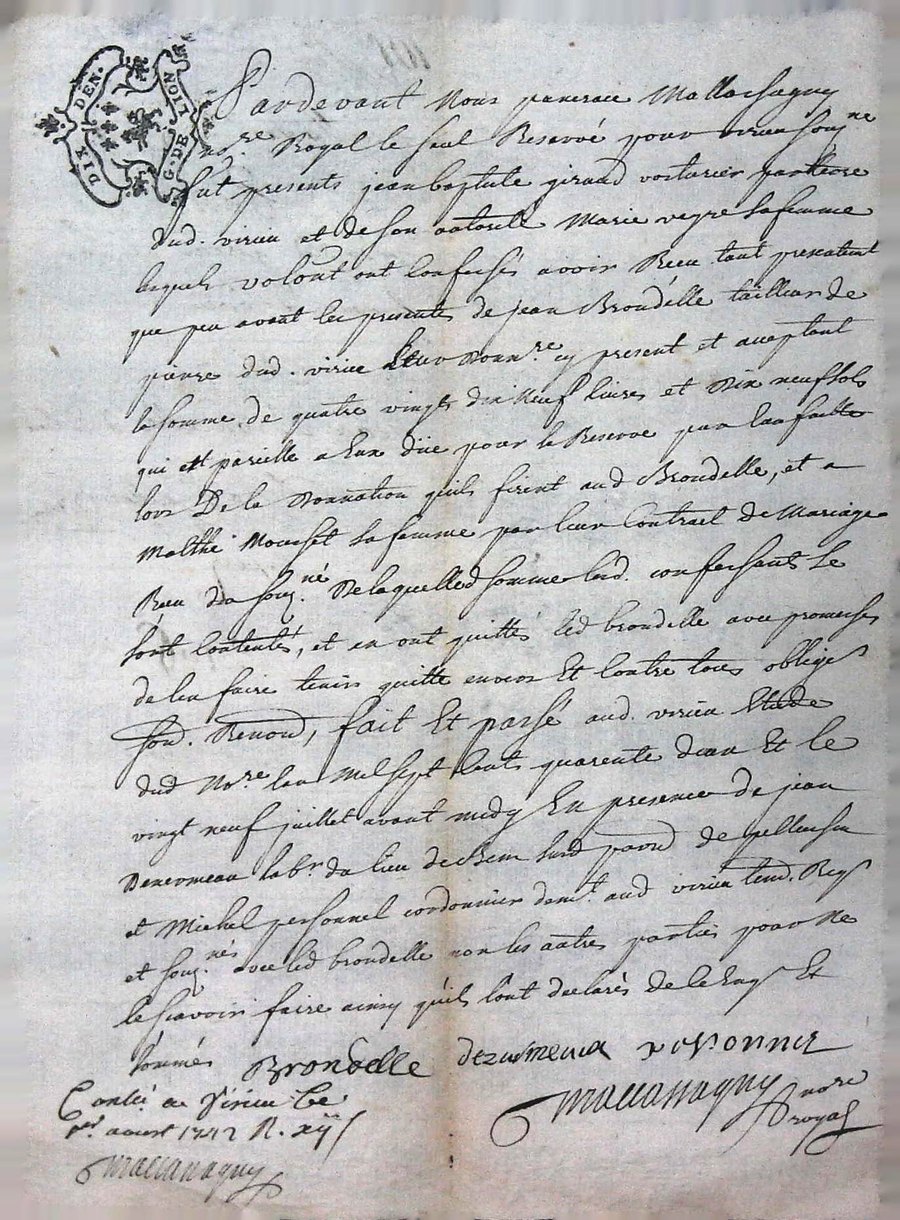 DIX DEN. G. DE LION
Pardevant Nous pancrace Mallassagny
no.re Royal le seul Reservé pour virieu soug.ne
fut presents jean baptiste giraud voiturier
dud. virieu et de son autorité Marie veyre sa femme
lesquels volont ont confessés avoir Receu tant presentemt
que peu avant les presentes de jean Brondelle tailleur de
pierre dud. virieu Leur Donn.re cy present et acceptant
la somme de quatre vingt dix Neuf livres et dix neuf sols
qui est pareille a Eux düe pour la Reserve par Eux faitte
lors De la Donnation quils firent aud Brondelle, et a
Matthé Mousset sa femme par leur Contrait de Mariage
Receu dud soug.né De laquelle somme lesd. confessants se
sont contentés, et en ont quittés led brondelle avec promesses
de len faire tenir quitte envers Et contre tous obliges
soud. Renond, fait Et passé aud. virieu Etude
dud No.re lan Mil sept cents quarente deux Et le
vingt neuf juillet avant midy En presence de jean
labr du lieu de pard de pellussin
et Michel personnel cordonnier demt. aud virieu temd. Reqs
et soug.nés avec led brondelle non les autres parties pour Ne
le scavoir faire ainsy quils l'ont declarés de ce Enqs Et
sommés Brondelle
Conlé a Virieu Le
1er aoust 1742 R. xij s
mallassagny no.re
royal
mallassagny